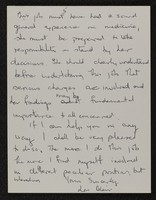 This job must have had a sound
general experience in medicine,
She must be prepared to take
responsibility & stand by her
decisions. She should clearly understand
before undertaking this job that
serious charges are involved and
her findings may be of fundamental
importance to all concerned.
If I can help you in any
way I shall be very pleased
to do so. The more I do this job
the more I find myself involved
in different peculiar positions but
interesting
Yours Sincerely